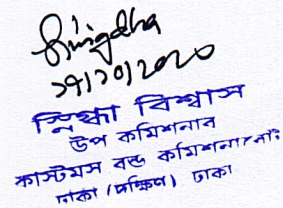 Snigdha
স্নিগ্ধা বিশ্বাস
উপ কমিশনার
কাস্টমস বন্ড কমিশনারেট
ঢাকা (দক্ষিণ) ঢাকা